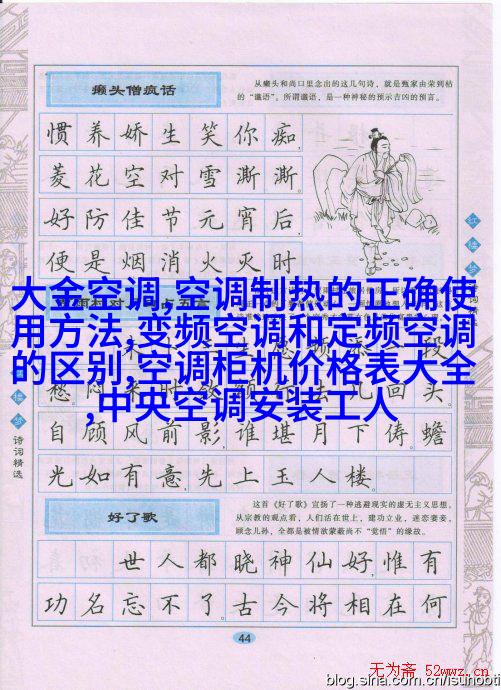 癞头僧疯话
从癞头和尚口里念出的这几句诗，就是甄家由荣到枯
的“谶语”。所谓谶语，是一种神秘的预示吉凶的预言。
惯养娇生笑你痴，
菱花空对雪澌澌。
好防佳节元宵后，
便是烟消火灭时
大金空调,空调制热的正确使
用方法,变频空调和定频空调
的区别,空调柜机价格表大全
,中央空调安装工人
自顾风前影，谁堪月下俦，蟾
光如有意，先上玉人楼。
好了歌
这首《好了歌》宣扬了一种逃避现实的虚无主义思想。
从宗教的观点看，人们活在世上，建功立业，迷恋妻妾，
顾念儿孙，全都是被情欲蒙蔽尚不“觉悟”的缘故。
世人都晓神仙好，惟有
功名忘不了古今将相在何
44
红楼梦
诗词精选
无为斋 52wwz.cn
blog.sina.com.cn/isunobti